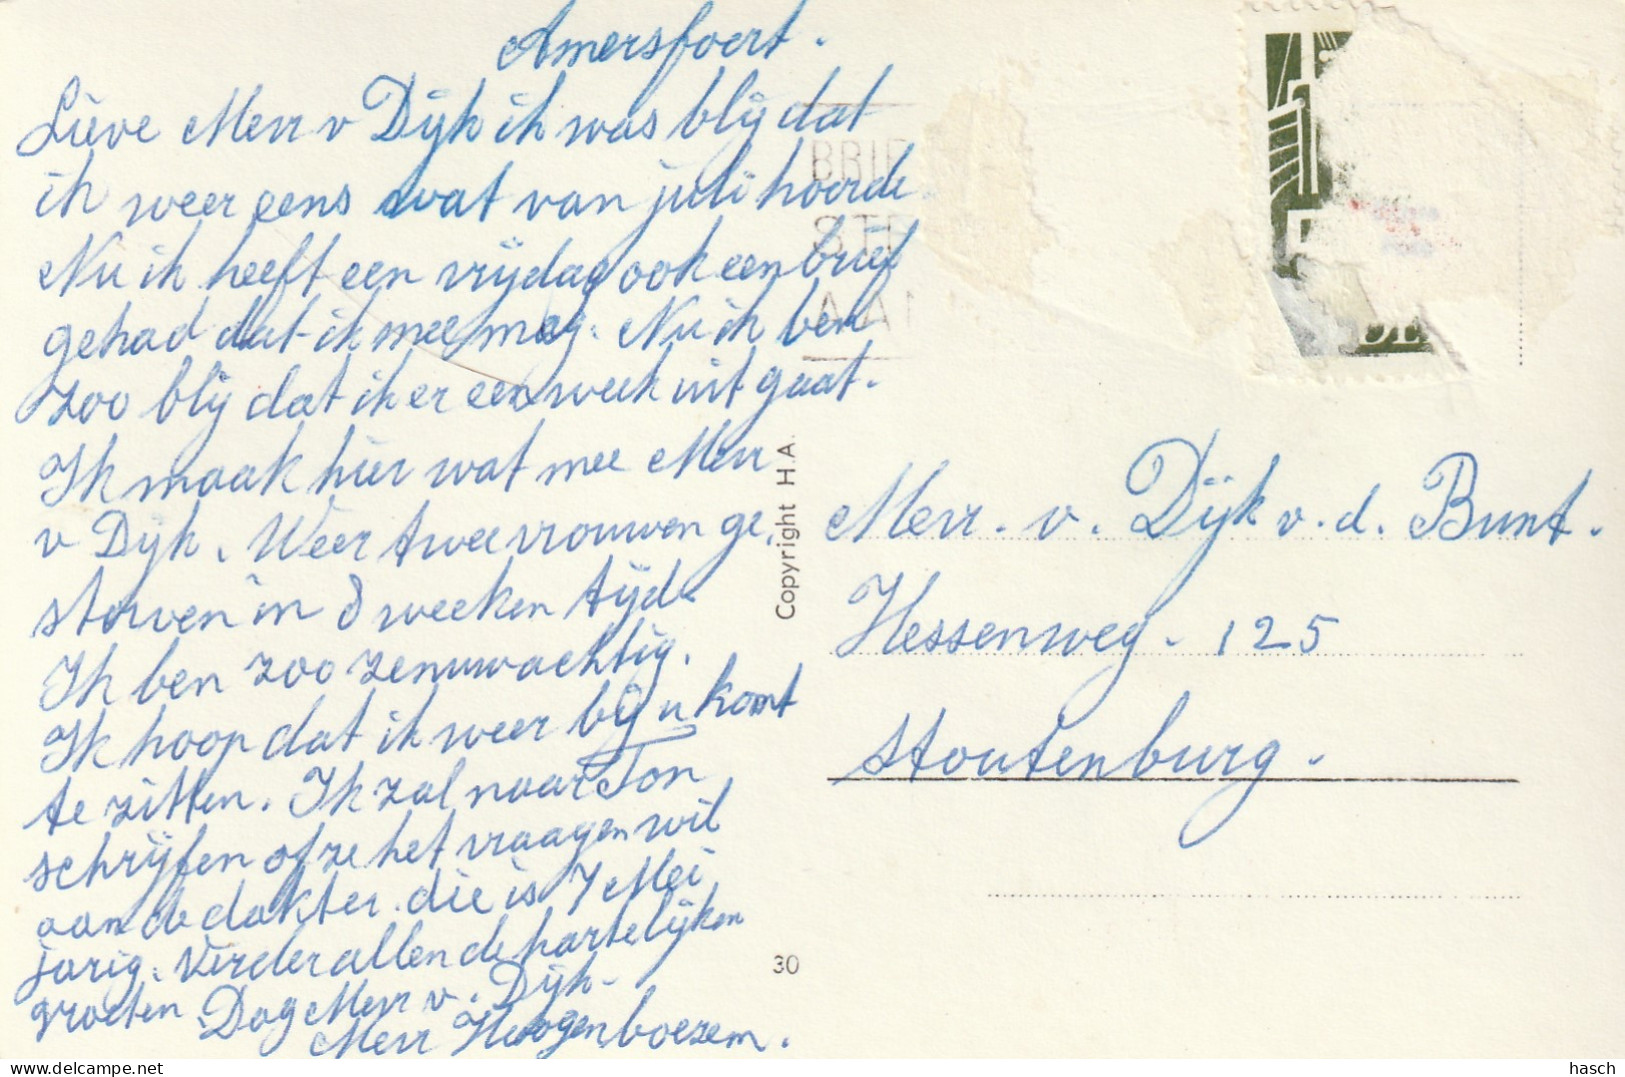 Amersfoort.
Lieve Mevr v Dijk ik was blij dat
ik weer eens wat van juli hoorde.
Nu ik heeft een vrijdag ook een brief
gehad dat ik mee mag. Nu ik ben
zoo blij dat ik er een week uit gaat.
Ik maak hier wat mee Mevr
v Dijk. Weer twee vrouwen ge.
storven in 3 weeken tijd.
Ik ben zoo zenuwachtig.
Ik hoop dat ik weer bij u komt
te zitten. Ik zal naar Ton
schrijfen of ze het vraagen wil
aan de dokter. die is 7 Mei
jarig. Verder allen de hartelijken
groeten Dag Mevr v. Dijk.
Mevr Hoogenboezem.
BRIE
STE
AAN
Copyright H.A.
30
Mevr. v. Dijk v. d. Bunt.
Hessenweg. 125
Stoutenburg.
hasch